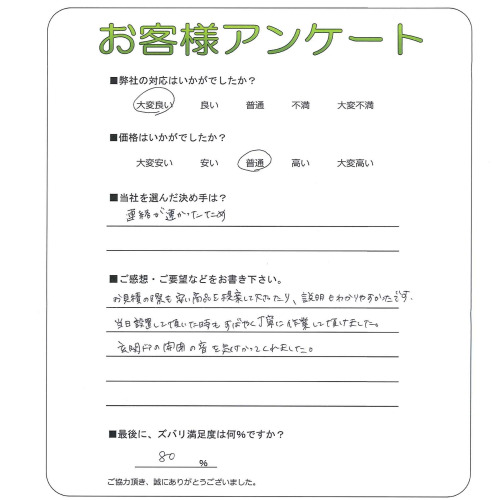 お客様アンケート
■弊社の対応はいかがでしたか？
大変良い 良い 普通 不満 大変不満
■価格はいかがでしたか？
大変安い 安い 普通 高い 大変高い
■当社を選んだ決め手は？
連絡が速かったため
■ご感想・ご要望などをお書き下さい。
お見積の際も安い商品を提案して下さったり、説明もわかりやすかたです.
当日設置して頂いた時もすばやく丁寧に作業して頂けました。
玄関 の周囲の音を気付かってくれました。
■最後に、ズバリ満足度は何%ですか？
80 %
ご協力頂き、誠にありがとうございました。